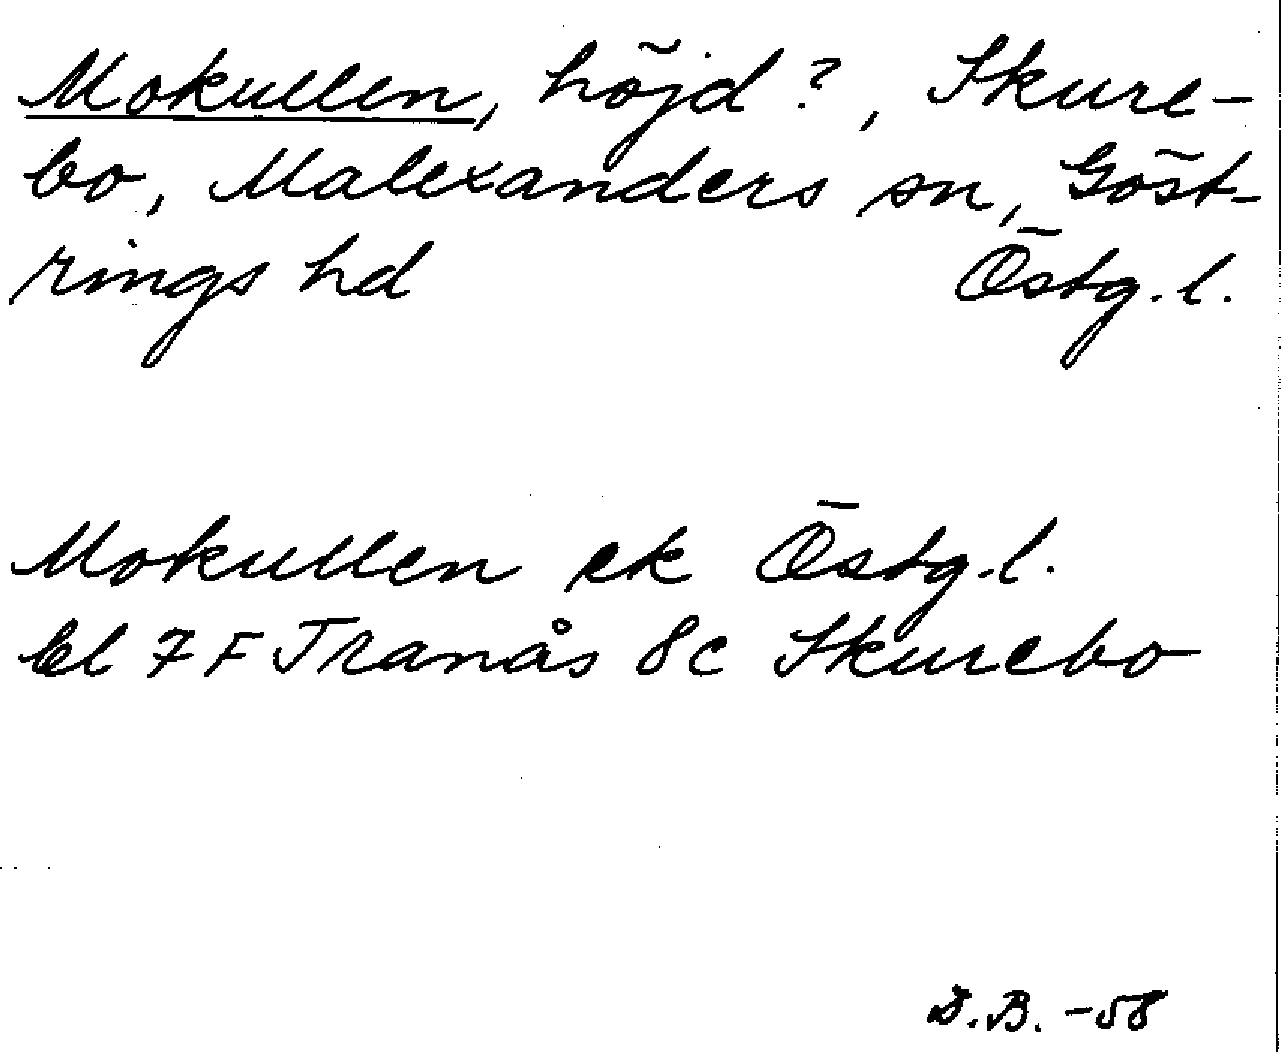 Mokullen, höjd?, Skure-
bo, Malexanders sn, Göst-
rings hd Östg.l.
Mokullen ek Östg.l.
bl 7F Tranås 8c Skurebo
D.B. -58